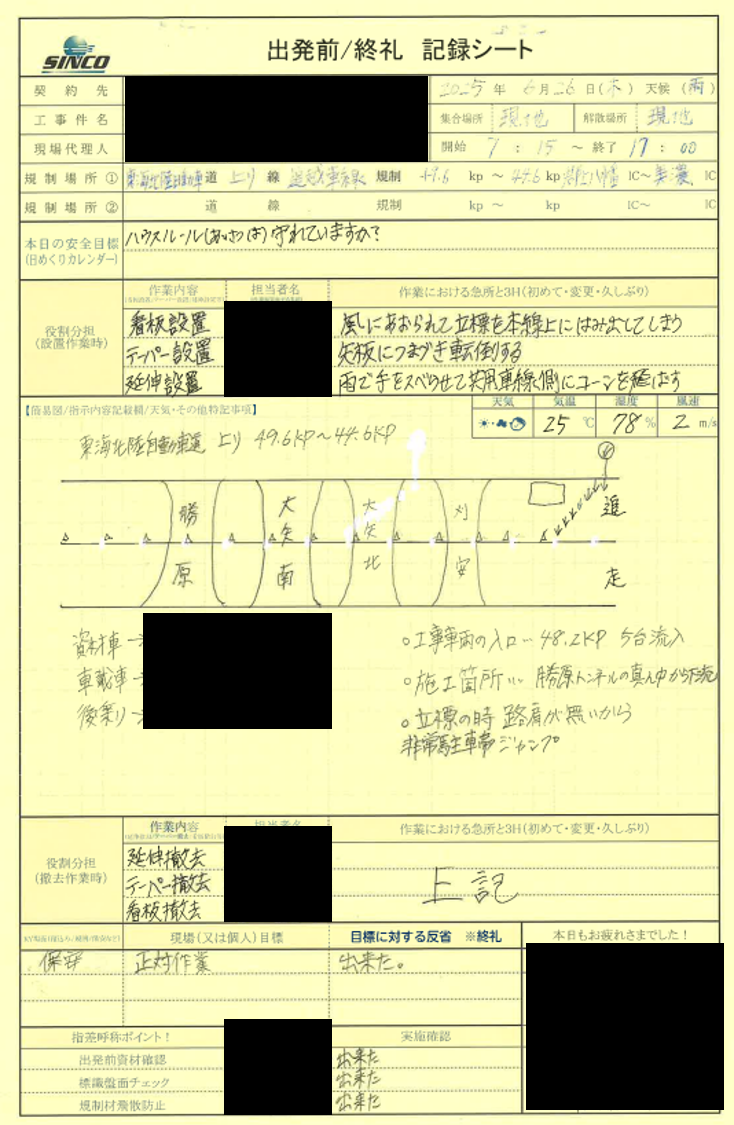 SINCO
出発前/終礼 記録シート
契約先
2025年 6月26日(木) 天候 (雨)
工事件名
集合場所 現地 解散場所 現地
現場代理人
開始 7:15 ～ 終了 17:00
規制場所① 東海北陸自動車道 上り 線 追越車線 規制 49.6 kp ～ 44.6 kp 郡上八幡 IC～ 美濃 IC
規制場所② 道 線 規制 kp ～ kp IC～ IC
本日の安全目標
(日めくりカレンダー)
ハウスルール(あいさつ は)守れていますか?
役割分担
(設置作業時)
作業内容 担当者名 作業における急所と3H(初めて・変更・久しぶり)
看板設置 風にあおられて立標を本線上にはみ出してしまう
テーパー設置 矢板につまづき転倒する
延伸設置 雨で手をスベらせて共用車線側にコーンを
【簡易図/指示内容記載欄/天気・その他特記事項】
天気 気温 湿度 風速
25℃ 78% 2 m/s
東海北陸自動車道 上り 49.6KP～44.6KP
勝原
大矢南
大矢北
刈安
追
走
資材車→
車載車→
後乗り→
○工事車両の入口… 48.2KP 5台流入
○施工箇所… 勝原トンネルの真ん中から下流
○立標の時 路肩が無いから
非常駐車帯ジャンプ
役割分担
(撤去作業時)
作業内容 担当者名 作業における急所と3H(初めて・変更・久しぶり)
延伸撤去
テーパー撤去
看板撤去
上記
現場(又は個人)目標 目標に対する反省 ※終礼 本日もお疲れさまでした!
保安 正対作業 出来た。
指差呼称ポイント! 実施確認
出発前資材確認 出来た
標識盤面チェック 出来た
規制材飛散防止 出来た